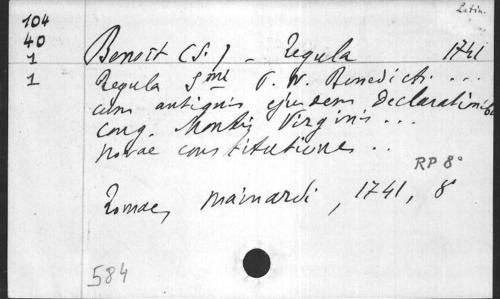 Latin.
104
40
1
1
Benoit (S.) - Regula 1741
Regula Smi P. N. Benedicti ...
cum antiquis ejusdem Declarationibus
cong. Montis Virginis ...
novae constitutiones ..
RP 8°
Romae, Mainardi, 1741, 8°
584